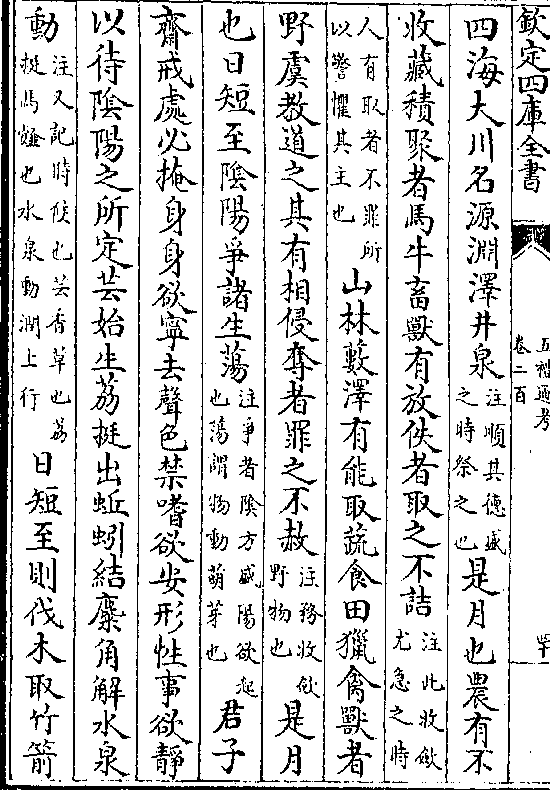 欽定四庫全書
五禮通考
卷二百
四海大川名源淵澤井泉注順其德盛之時祭之也是月也農有不
收藏積聚者馬牛畜獸有放佚者取之不詰注此收斂尤急之時
人有取者不罪所以警懼其主也山林藪澤有能取蔬食田獵禽獸者
野虞教道之其有相侵奪者罪之不赦注務收斂野物也是月
也日短至陰陽爭諸生蕩注爭者陰方盛陽欲起也蕩謂物動萌芽也君子
齋戒處必掩身身欲寧去聲色禁嗜欲安形性事欲靜
以待陰陽之所定芸始生荔挺出蚯蚓結麋角解水泉
動注又記時候也芸香草也荔挺馬䪥也水泉動潤上行日短至則伐木取竹箭